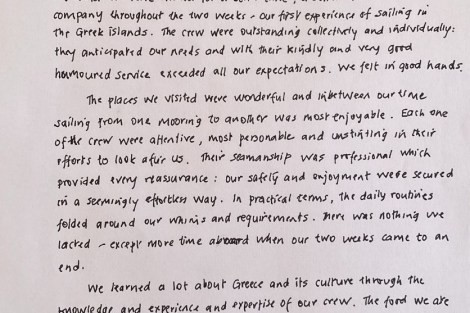 company throughout the two weeks - our first experience of sailing in
the Greek Islands. The crew were outstanding collectively and individually:
they anticipated our needs and with their kindly and very good
houmoured service exceeded all our expectations. We felt in good hands.
The places we visited were wonderful and inbetween our time
sailing from one mooring to another was most enjoyable. Each one
of the crew were attentive, most personable and unstinting in their
efforts to look after us. Their seamanship was professional which
provided every reassurance: our safety and enjoyment were secured
in a seemingly effortless way. In practical terms, the daily routines
folded around our whims and requirements. There was nothing we
lacked - except more time aboard when our two weeks came to an
end.
We learned a lot about Greece and its culture through the
knowledge and experience and expertise of our crew. The food we are